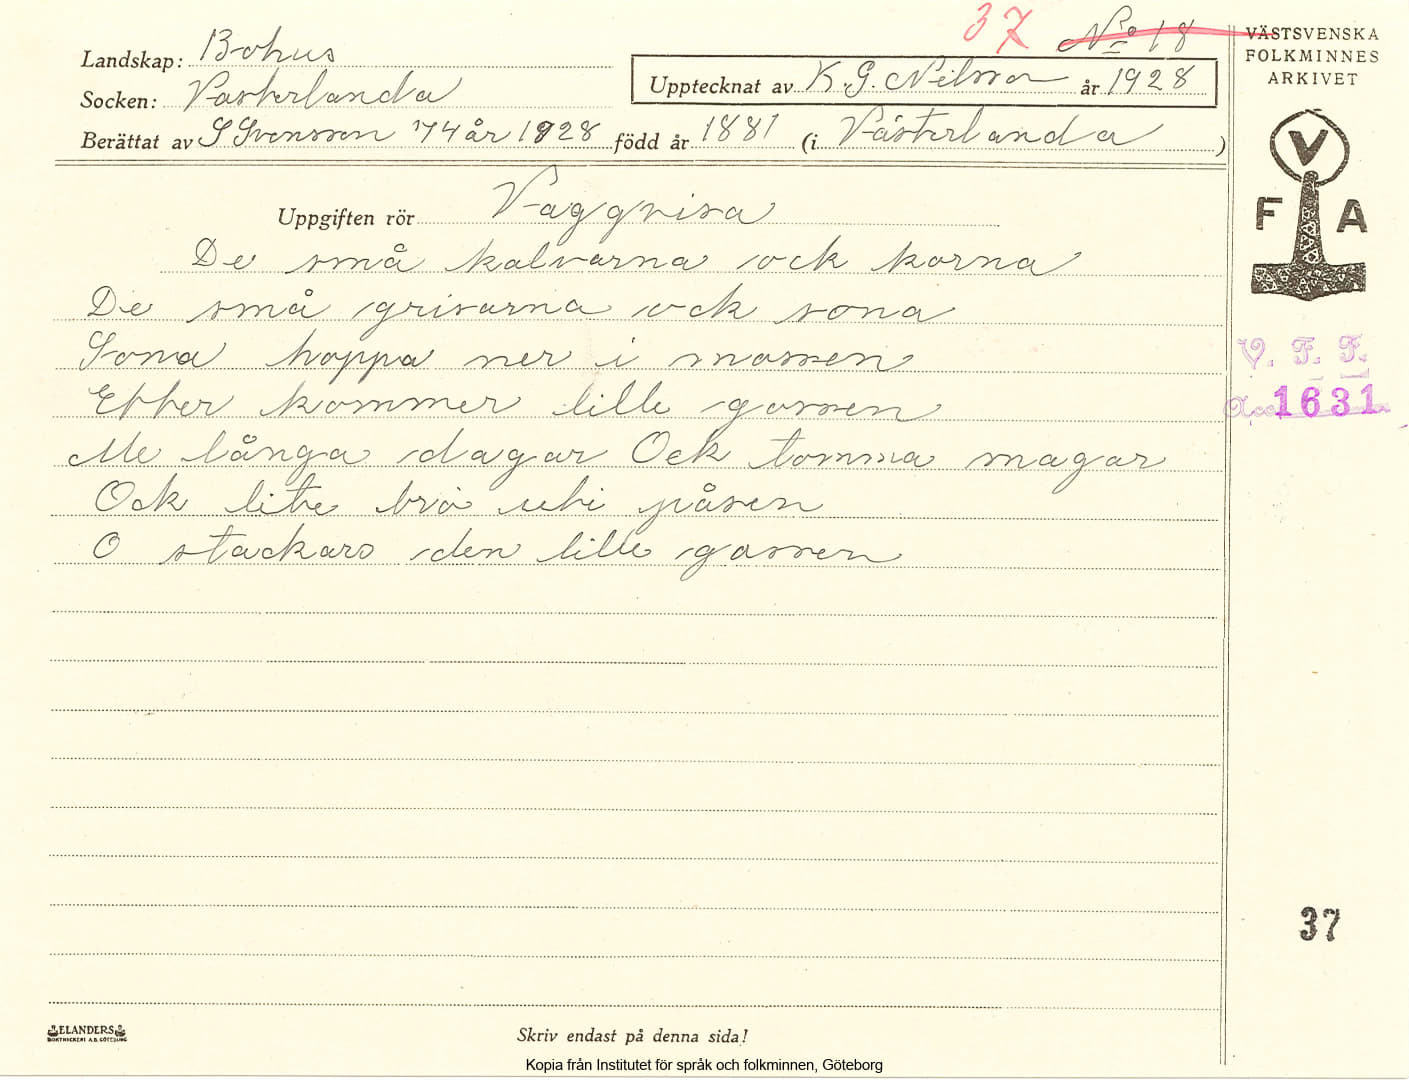 37 No 18
Landskap: Bohus
Upptecknat av K.G. Nilsson år 1928
Socken: Västerlanda
Berättat av S Svensson 74 år 1928 född år 1881 (i Västerlanda )
Uppgiften rör Vaggvisa
De små kalvarna ock korna
De små grisarna ock sona
Sona hoppa ner i mossen
Efter kommer lille gossen
Me långa dagar Ock tomma magar
Ock lite brö uti påsen
O stackars den lille gossen
VÄSTSVENSKA
FOLKMINNES
ARKIVET
V
F A
V. F. F.
Acc 1631
37
ELANDERS
BOKTRYCKERI A.B. GÖTEBORG
Skriv endast på denna sida!
Kopia från Institutet för språk och folkminnen, Göteborg